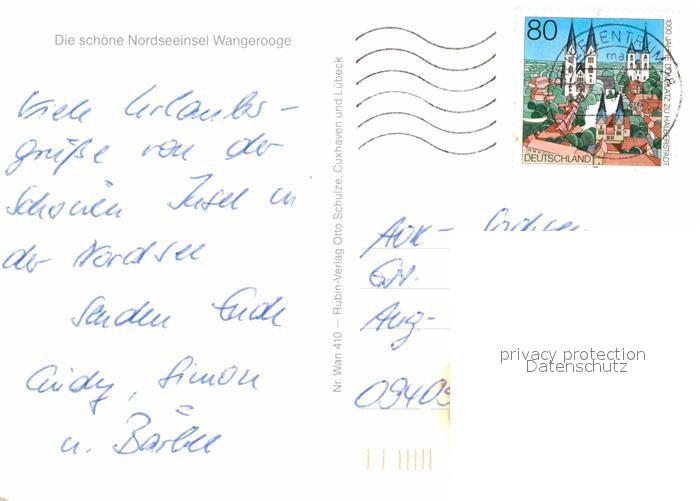 Die schöne Nordseeinsel Wangerooge
Viele Urlaubs-
grüße von der
schönen Insel in
der Nordsee
senden Euch
Cindy, Simon
u. Bärbel
Nr. Wan 410 — Rubin-Verlag Otto Schulze, Cuxhaven und Lübeck
80
1000 JAHRE DOMPLATZ ZU HALBERSTADT
DEUTSCHLAND
AOK-
Aug-
09405
privacy protection
Datenschutz